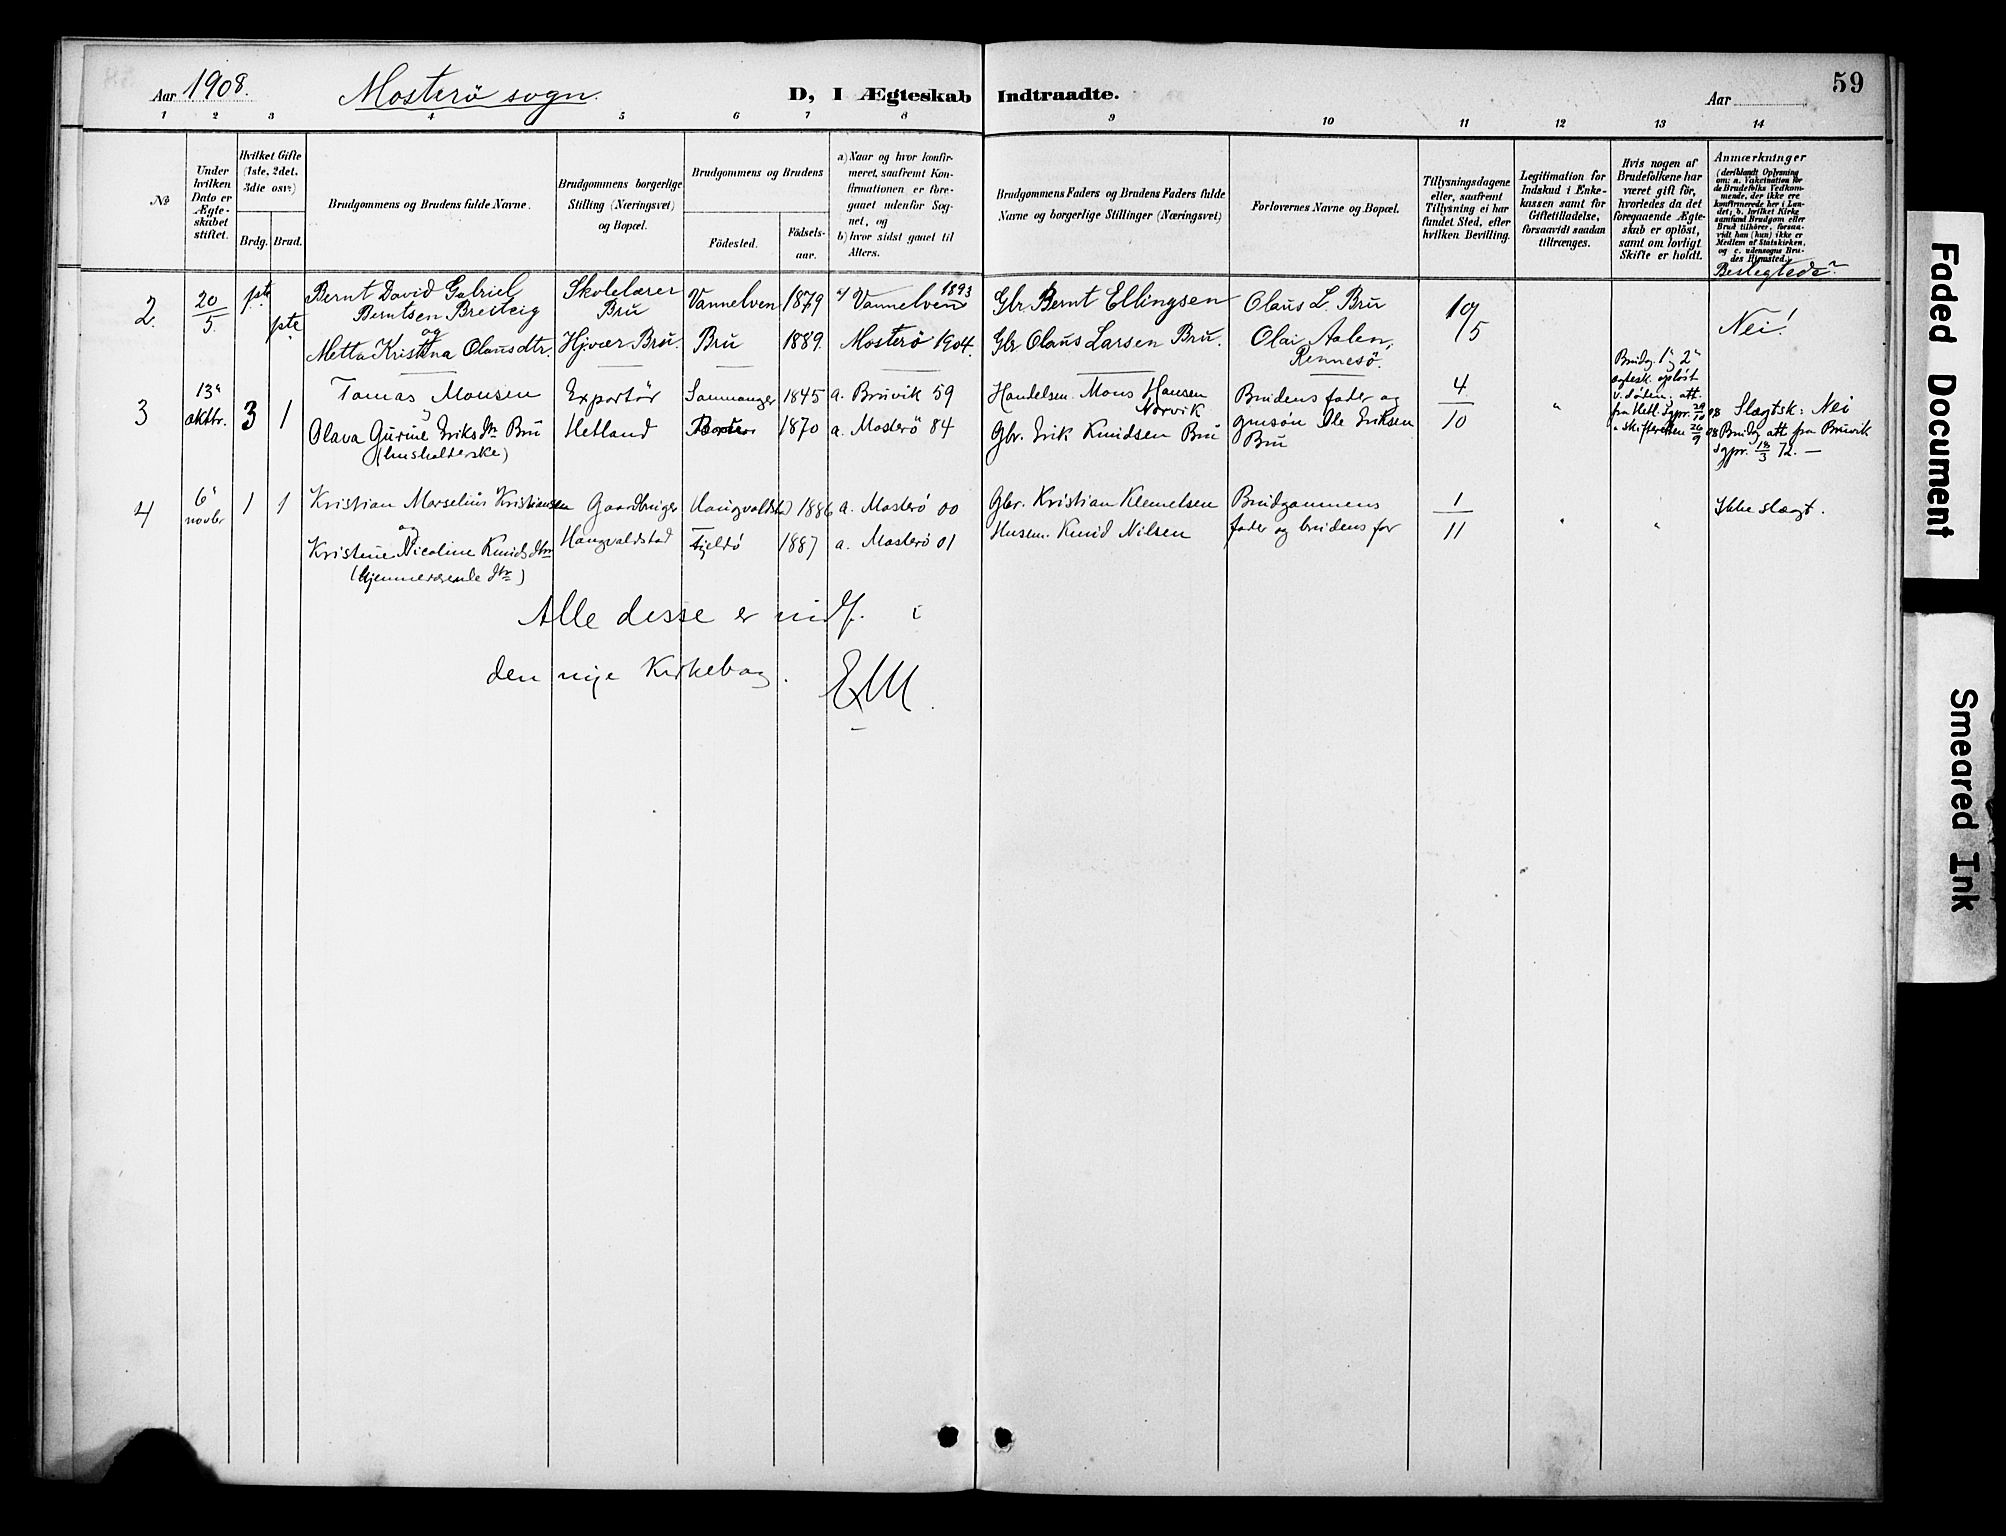 59
Aar 1908. Mosterö sogn. D, I Ægteskab Indtraadte. Aar
1 2 3 4 5 6 7 8 9 10 11 12 13 14
No
Under hvilken Dato er Ægteskabet stiftet.
Hvilket Gifte (1ste, 2det, 3die osv.)
Brdg. Brud.
Brudgommens og Brudens fulde Navne.
Brudgommens borgerlige Stilling (Næringsvei) og Bopæl.
Brudgommens og Brudens
Fødested. Fødselsaar.
a) Naar og hvor konfirmeret, saafremt Konfirmationen er foregaaet udenfor Sognet, og
b) hvor sidst gaaet til Alters.
Brudgommens Faders og Brudens Faders fulde Navne og borgerlige Stillinger (Næringsvei)
Forlovernes Navne og Bopæl.
Tillysningsdagene eller, saafremt Tillysning ei har fundet Sted, efter hvilken Bevilling.
Legitimation for Indskud i Enkekassen samt for Giftetilladelse, forsaavidt saadan tiltrænges.
Hvis nogen af Brudefolkene har været gift før, hvorledes da det foregaaende Ægteskab er opløst, samt om lovligt Skifte er holdt.
Anmærkninger (deriblandt Oplysning om: a. Vakcination for de Brudefolks Vedkommende, der ikke ere konfirmerede her i Landet; b. hvilket Kirkesamfund Brudgom eller Brud tilhører, forsaavidt han (hun) ikke er Medlem af Statskirken, og c. udensogns Brudes Hjemsted.)
Beslegtede?
2. 20/5 pte pte
Bernt David Gabriel
Berntsen Breiteig
og
Metta Kristina Olausdtr.
Skolelærer
Bru
Hjvær Bru.
Vannelven 1879 a/ Vannelven 1893
Bru 1889. Mosterö 1904.
Gbr. Bernt Ellingsen
Gbr Olaus Larsen Bru.
Olaus L. Bru
Olai Aalen,
Rennesö.
10/5
Nei!
3 13de oktbr. 3 1
Tomas Monsen
Olava Gurine Eriksdtr Bru
(husholderske)
Exportør
Hetland
Sammanger 1845 a. Bruvik 59
1870 a. Mosterö 84
Handelsm. Mons Hansen
Norvik
Gbr. Erik Knudsen Bru
Brudens fader og
Ole Eriksen
Bru
4/10
"
Brudg. 1ste og 2det
ægtesk. opløst
v. døden: att.
fra Hetl. Sgpr. 29/10 08
Slægtsk: Nei
Brudg. att fra Bruvik
Sgpr. 18/3 72. —
4 6te novbr 1 1
Kristian Marselius Kristiansen
og
Kristine Nicoline Knudsdtr
(hjemmeværende dtr)
Gaardbruger
Haugvaldstad
Haugvaldstad 1886 a. Mosterö 00
Fjeldö 1887 a. Mosterö 01
Gbr. Kristian Klemetsen
Husm. Knud Nilsen
Brudgommens
fader og brudens far
1/11
" "
Ikke slægt.
Alle desse er indf. i
den nye Kirkebog.
EM.
Faded Document
Smeared Ink